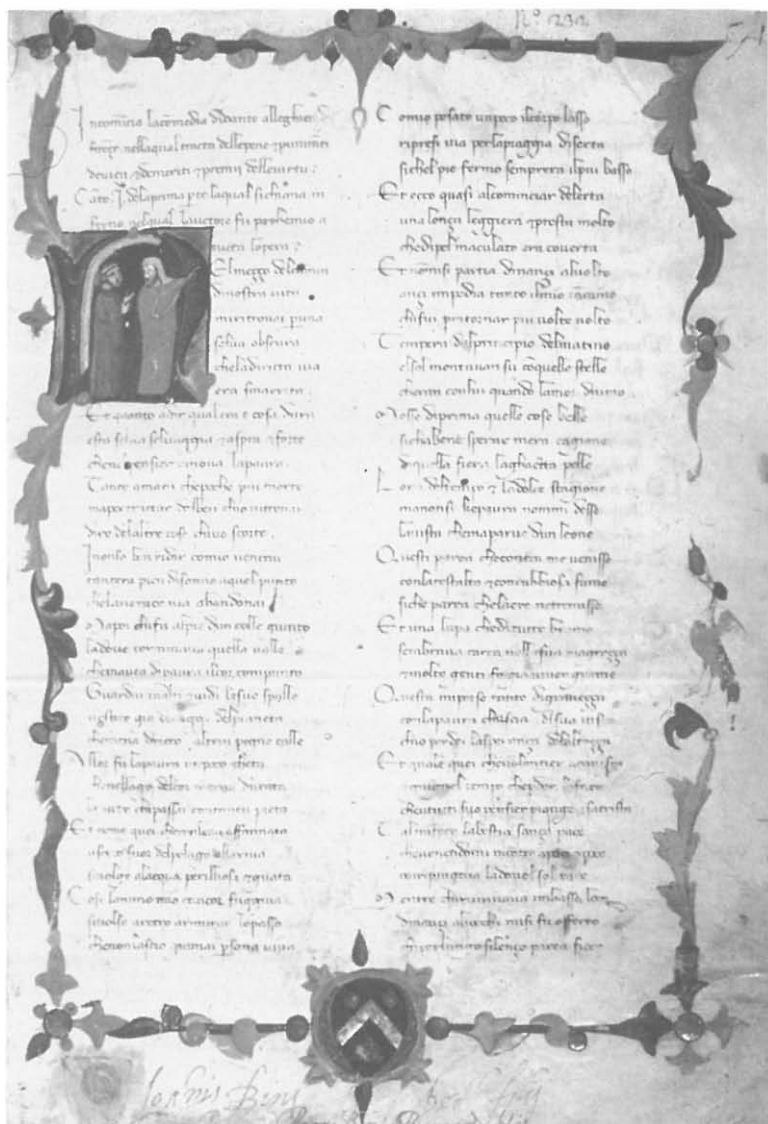 Nº. 232
54
Incomincia lacomedia didante alleghieri di
firenze nellaqual tracta dellepene et punimenti
devicij et demeriti et premij dellevirtu:
Canto .I. delaprima parte laqual sichiama in
ferno nelqual lauctore fa prohemio a
tucta lopera:
El mezzo delcamin
dinostra vita
mi ritrovai per una
selva obscura
cheladiricta via
era smarrita.
Et quanto adir qual era e cosa dura
esta selva selvaggia et aspra et forte
chenel pensier rinova lapaura.
Tante amara chepocho piu morte
ma per tractar delben chio vitrovai
diro delaltre cose chivo scorte.
Inonso ben ridir comio ventrai
tantera pien disonno aquel punto
chelaverace via abandonai
Mapoi chifu alpie dun colle giunto
ladove terminava quella valle
chemavea dipaura ilcor compunto
Guardai inalto et vidi lesue spalle
vestite gia deraggi delpianeta
chemena dricto altrui perogne calle
Allor fu lapaura un poco cheta
chenellago delcor mera durata
la nocte chipassai contanta pieta
Et come quei checonlena affannata
uscito fuor delpelago alariva
sivolge alacqua perilliosa et guata
Cosi lanimo mio ancor fuggiva
sivolse aretro arimirar lopasso
chenonlascio giamai persona viva
Comio posato unpoco ilcorpo lasso
ripresi via perlapiaggia diserta
sichel pie fermo semprera ilpiu basso
Et ecco quasi alcominciar delerta
una lonça leggiera et presta molto
chedipel maculato era coverta
Et nomisi partia dinançi alvolto
ançi impedia tanto ilmio camino
chifui perritornar piu volte volto
Tempera dalprincipio delmatino
elsol montavan su conquelle stelle
cheran conlui quando lamor divino
Mosse diprima quelle cose belle
sichabene sperar mera cagione
diquella fiera lagaetta pelle
Lora deltempo et ladolce stagione
manonsi chepaura nonmi desse
lavista chemaparve dun leone
Questi parea checontra me venisse
conlatestalta et conrabbiosa fame
siche parea chelaere netremisse
Et una lupa cheditucte brame
sembrava carca nella sua magrezza
et molte genti fe gia viver grame
Questa mi porse tanto digravezza
conlapaura chuscia di sua vista
chio perdei lasperanza delaltezza
Et quale quei chevolontier acquista
et giugnel tempo cheperder loface
chentucti suo pensier piange et sattrista
Tal mifece labestia sança pace
chevenendomi incontro apoco apoco
miripingeva ladovel sol tace
Mentre chirovinava inbasso loco
dinançi aliocchi misi fu offerto
chiperlungo silenço parea fioco
Joannis